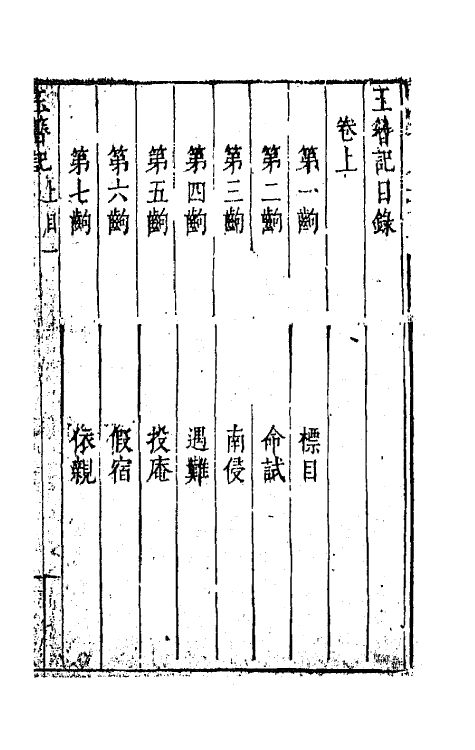 玉簪記目錄
卷上
第一齣 標目
第二齣 命試
第三齣 南侵
第四齣 遇難
第五齣 投庵
第六齣 假宿
第七齣 依親
玉簪記 上目 一